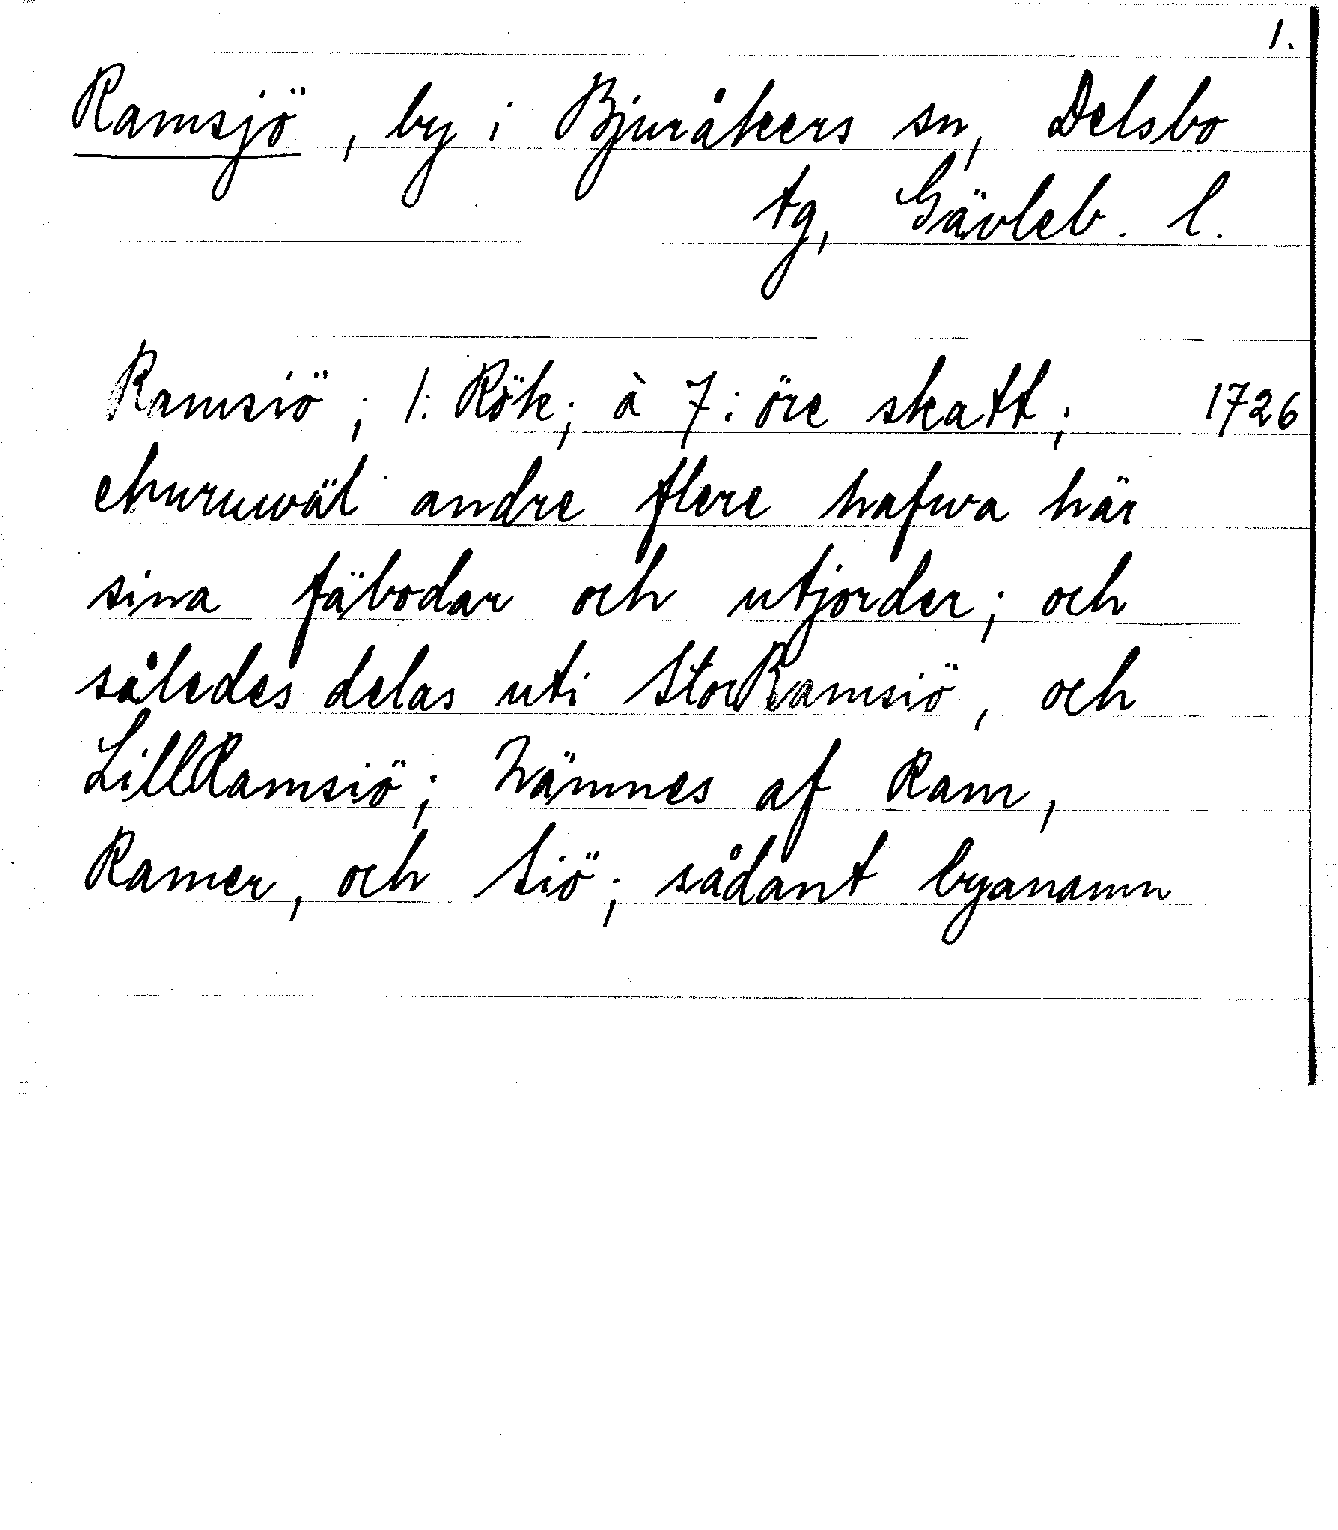 1.
Ramsjö, by i Bjuråkers sn, Delsbo
tg, Gävleb. l.
Ramsiö; 1: Rök; à 7: öre skatt; 1726
ehuruwäl andre flere hafwa här
sina fäbodar och utjorder; och
således delas uti StorRamsiö, och
LillRamsiö; Nämnes af Ram,
Ramer, och Siö; sådant byanamn